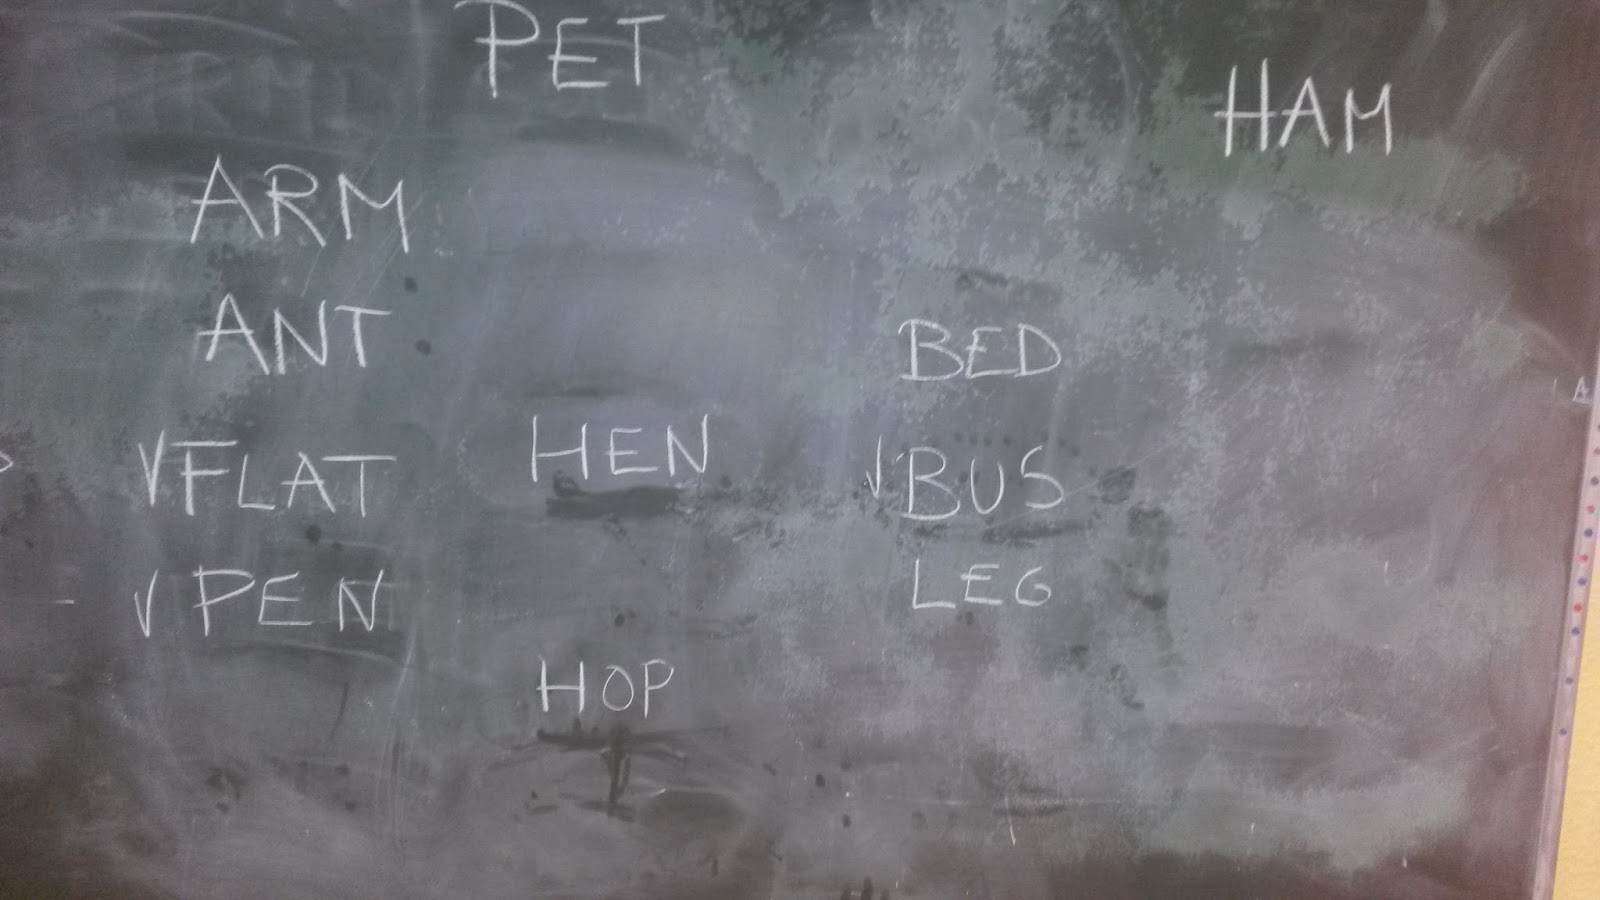 PET
HAM
ARM
ANT
BED
√FLAT
HEN
√BUS
√PEN
LEG
HOP